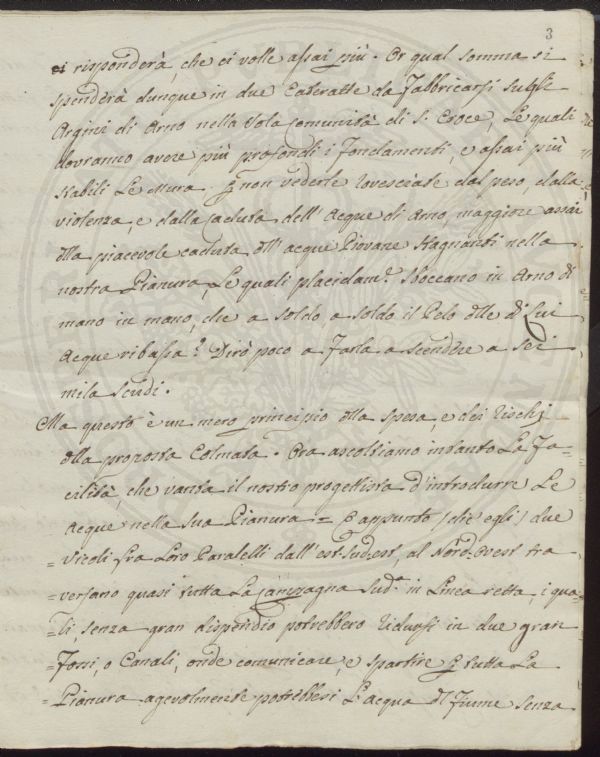 3
ci risponderà, che ci volle assai più. Or qual somma si
spenderà dunque in due Cateratte da Fabbricarsi sugli
Argini di Arno nella sola Comunità di S. Croce, Le quali
dovranno avere più profondi i Fondamenti, e assai più
stabili Le Mura. p non vederle rovesciate dal peso, dalla
violenza, e dalla Caduta dell' Acque di Arno, maggiore assai
dlla piacevole caduta dll' acque Piovane stagnanti nella
nostra Pianura, Le quali placidam.e sboccano in Arno di
mano in mano, che a soldo, a soldo il Pelo dlle di Lui
Acque ribassa? Dirò poco a Farla a scendere a sei
mila scudi.
Ma questo è un mero principio dlla spesa, e dei rischj
dlla proposta Colmata. Ora ascoltiamo intanto La Fa-
cilità, che vanta il nostro progettista d'introdurre Le
Acque nella sua Pianura = p appunto (dic' egli) due
= Vicoli fra Loro Paralelli dall' est-sud-est, al Nord-ovest tra
= versano quasi tutta La Campagna sud.a in Linea retta, i qua-
= li, senza gran dispendio potrebbero ridursi in due gran
= Fossi, o Canali, onde comunicare, e spartire p tutta La
= Pianura agevolmente potrebbesi L'acqua dl Fiume senza